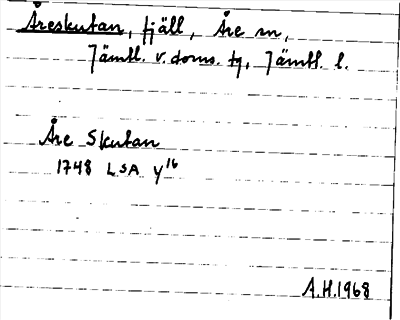 Åreskutan, fjäll, Åre sn,
Jämtl. v. doms. tg, Jämtl. l.
Åre Skutan
1748 LSA y16
A.H.1968